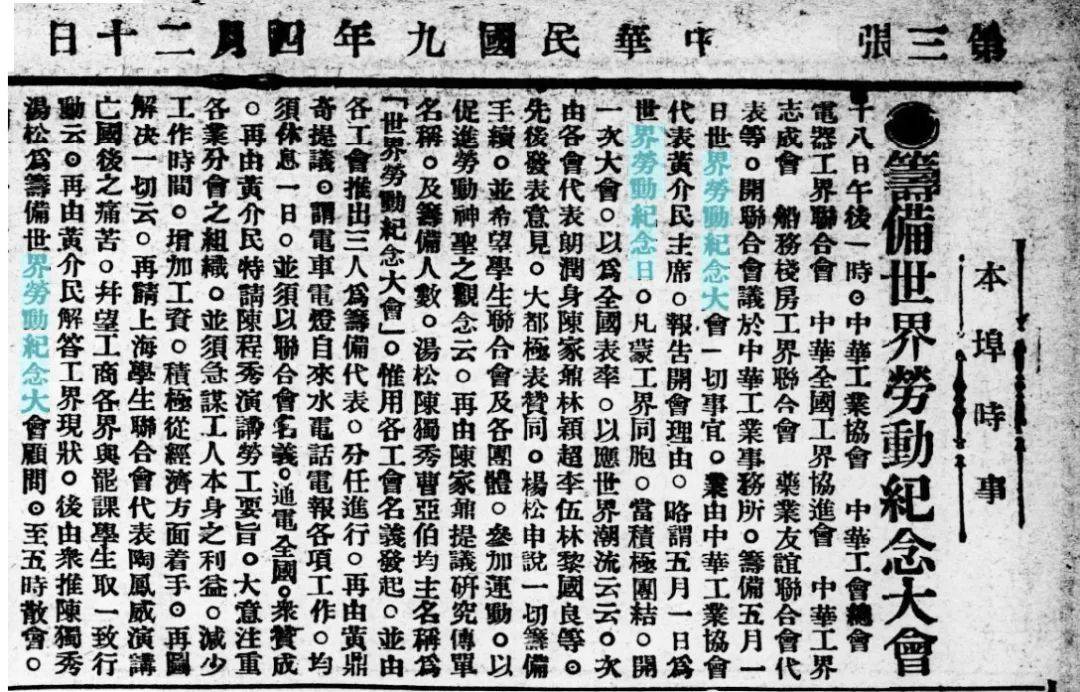 第三張
中華民國九年四月二十日
本埠時事
●籌備世界勞動紀念大會
十八日午後一時。中華工業協會 中華工會總會
電器工界聯合會 中華全國工界協進會 中華工界
志成會 船務棧房工界聯合會 藥業友誼聯合會代
表等。開聯合會議於中華工業事務所。籌備五月一
日世界勞動紀念大會一切事宜。業由中華工業協會
代表黃介民主席。報告開會理由。略謂五月一日爲
世界勞動紀念日。凡蒙工界同胞。當積極團結。開
一次大會。以爲全國表率。以應世界潮流云云。次
由各會代表朗潤身陳家鼐林穎超李伍林黎國良等。
先後發表意見。大都極表贊同。楊松申說一切籌備
手續。並希望學生聯合會及各團體。參加運動。以
促進勞動神聖之觀念云。再由陳家鼐提議硏究傳單
名稱。及籌備人數。湯松陳獨秀曹亞伯均主名稱爲
「世界勞動紀念大會」。惟用各工會名義發起。並由
各工會推出三人爲籌備代表。分任進行。再由黃鼎
奇提議。謂電車電燈自來水電話電報各項工作。均
須休息一日。並須以聯合會名義。通電全國。衆贊成
。再由黃介民特請陳程秀演講勞工要旨。大意注重
各業分會之組織。並須急謀工人本身之利益。減少
工作時間。增加工資。積極從經濟方面着手。再圖
解決一切云。再請上海學生聯合會代表陶鳳威演講
亡國後之痛苦。幷望工商各界與罷課學生取一致行
動云。再由黃介民解答工界現狀。後由衆推陳獨秀
湯松爲籌備世界勞動紀念大會顧問。至五時散會。